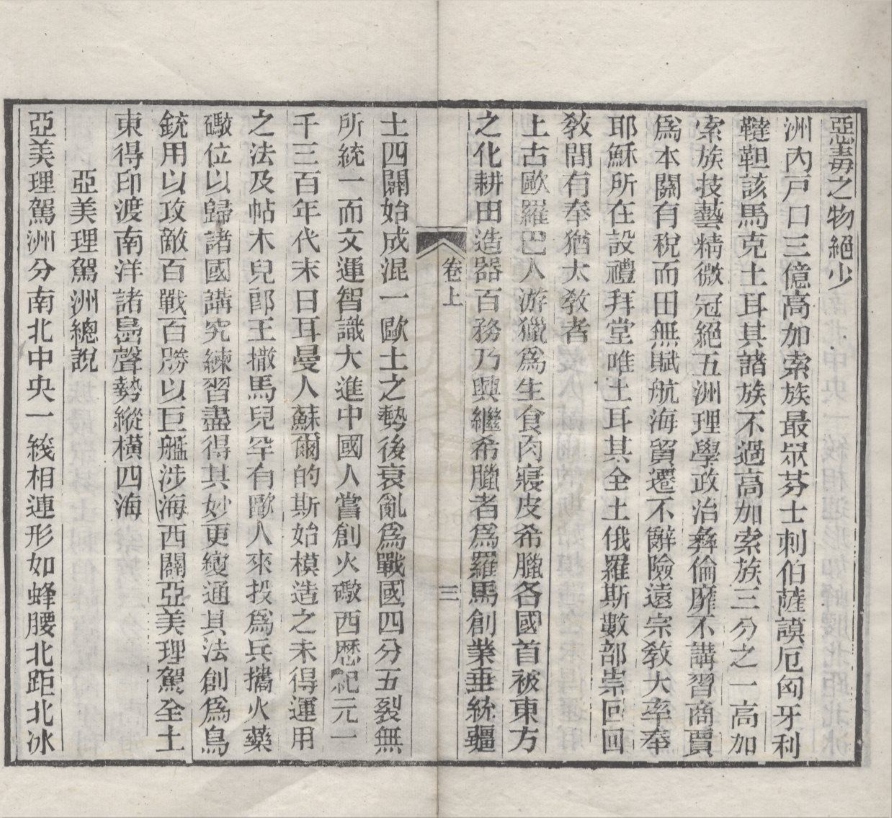 惡毒之物絕少
洲內戸口三億高加索族最眾芬士刺伯薩謨厄匈牙利
韃靼該馬克土耳其諸族不過高加索族三分之一高加
索族技藝精微冠絕五洲理學政治彝倫靡不講習商賈
爲本關有稅而田無賦航海貿遷不辭險遠宗敎大率奉
耶穌所在設禮拜堂唯土耳其全土俄羅斯數部崇回回
敎間有奉猶太敎者
上古歐羅巴人游獵爲生食肉寢皮希臘各國首被東方
之化耕田造器百務乃興繼希臘者爲羅馬創業垂統疆
卷上
三
土四闢始成混一歐土之勢後衰亂爲戰國四分五裂無
所統一而文運智識大進中國人嘗創火礮西厯紀元一
千三百年代末日耳曼人蘇爾的斯始模造之未得運用
之法及帖木兒郎王撒馬兒罕有歐人來投爲兵攜火藥
礮位以歸諸國講究練習盡得其妙更變通其法創爲鳥
銃用以攻敵百戰百勝以巨艦涉海西闢亞美理駕全土
東得印渡南洋諸島聲勢縱橫四海
亞美理駕洲總說
亞美理駕洲分南北中央一綫相連形如蜂腰北距北冰